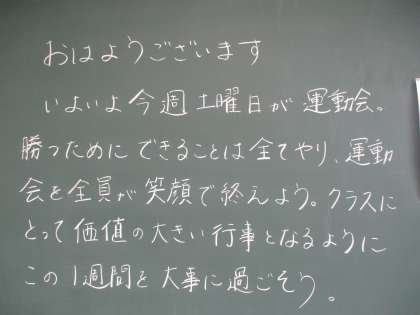 おはようございます
いよいよ今週土曜日が運動会。
勝つためにできることは全てやり、運動
会を全員が笑顔で終えよう。クラスに
とって価値の大きい行事となるように
この1週間を大事に過ごそう。